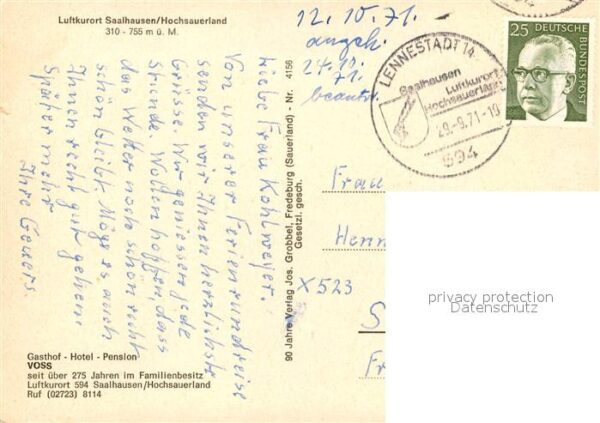 Luftkurort Saalhausen/Hochsauerland
310 - 755 m ü. M.
12. 10. 71.
angek.
24. 10.
71.
beantw.
LENNESTADT 14
Saalhausen
Luftkurort
Hochsauerland
29.-9.71-19
594
25
DEUTSCHE
BUNDESPOST
Liebe Frau Kohlweyer.
Von unserer Ferienrundreise
senden wir Ihnen herzlichste
Grüsse. Wir geniessen jede
Stunde. Wollen hoffen, dass
das Wetter noch schön recht
schön bleibt. Möge es auch
Ihnen recht gut gehen.
Später mehr
Ihre
90 Jahre Verlag Jos. Grobbel, Fredeburg (Sauerland) - Nr. 4156
Gesetzl. gesch.
Frau
Henn
X523
S
Fr
privacy protection
Datenschutz
Gasthof - Hotel - Pension
VOSS
seit über 275 Jahren im Familienbesitz
Luftkurort 594 Saalhausen/Hochsauerland
Ruf (02723) 8114